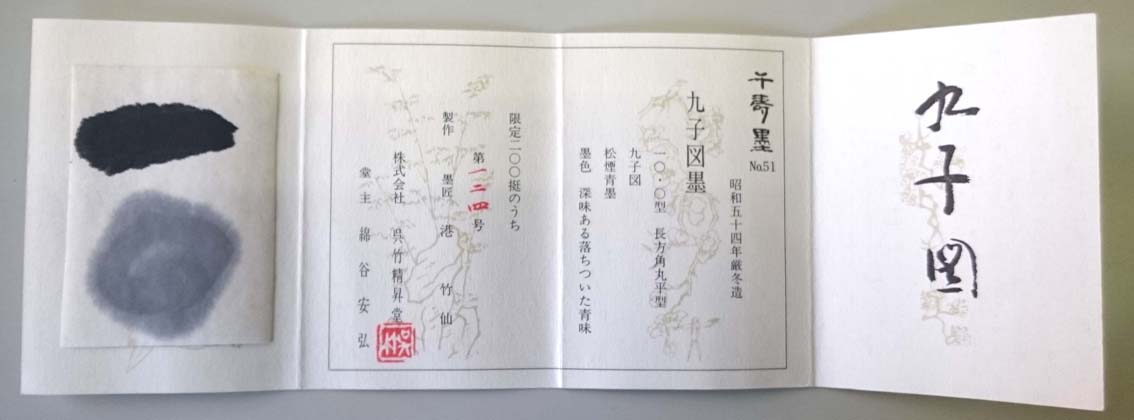 九子図
千寿墨 No.51
昭和五十四年厳冬造
九子図墨
一〇・〇型 長方角丸平型
九子図
松煙青墨
墨色 深味ある落ちついた青味
限定二〇〇挺のうち
第一二四号
製作 墨匠 港竹仙
株式会社 呉竹精昇堂
堂主 綿谷安弘
呉竹